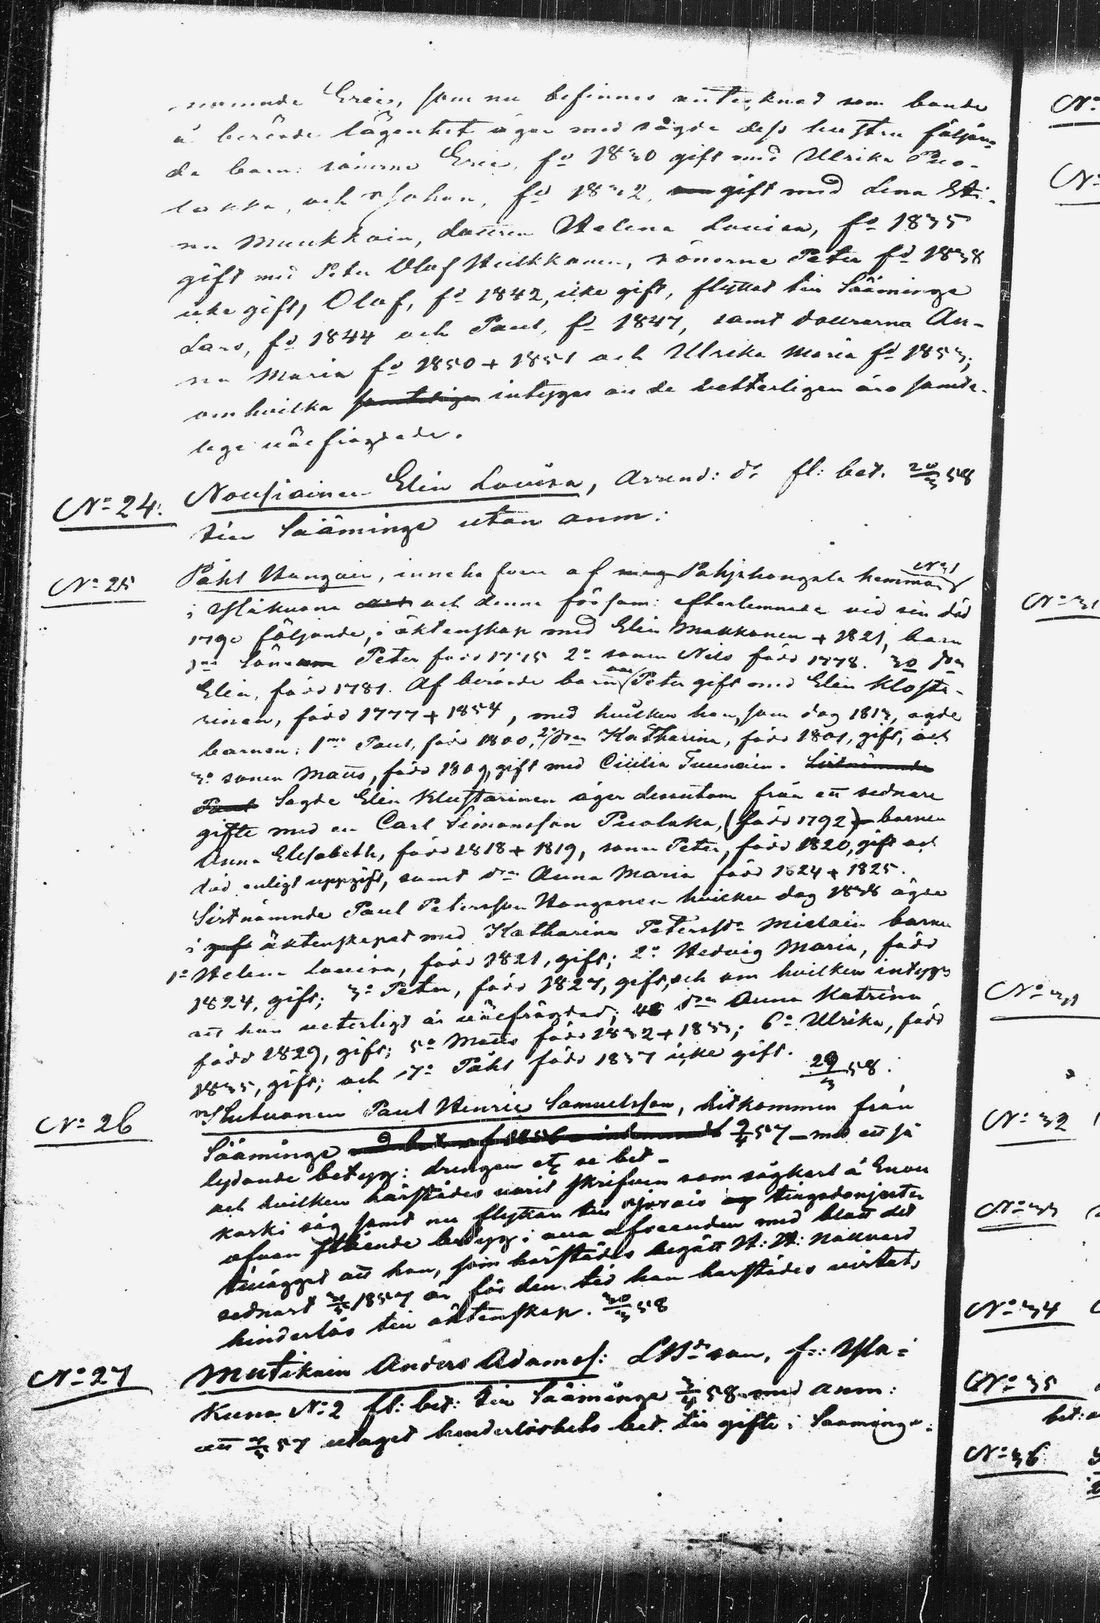 nämnde Eric, som nu befinnes antecknad som bonde
å berörde lägenhet äger med sagde dess hustru följan-
de barn: sönerne Eric, fd 1830 gift med Ulrika Puo-
lakka, och Johan, fd 1832, gift med Lena Sti-
na Muukkoin, dottren Helena Lovisa, fd 1835
gift med Peter Olof Heikkonen, sönerne Peter fd 1838
icke gift, Olof, fd 1842, icke gift, flyttat till Sääminge
Lars, fd 1844 och Paul, fd 1847, samt döttrarna An-
na Maria fd 1850 + 1851 och Ulrika Maria fd 1853;
om hvilka samtelige intygas att de vetterligen äro samte-
lige väl frägdade.
No 24. Nousiainen Elin Lovisa, Arrend: dr fl: bet. 20/3 58
till Sääminge utan anm:
No 25 Påhl Hangain, innehafvare af Pohjskongala hemman No 1
i Yläkuona och denne församl: efterlemnade vid sin död
1790 följande, i äktenskap med Elin Makkonen + 1821, barn
1mo Sönen Peter född 1775 2o sonen Nils född 1778. 3o dm
Elin, född 1781. Af berörde barn var Peter gift med Elin Klosta-
rinen, född 1777 + 1854, med hvilken han, som dog 1813, ägde
barnen: 1mo Paul, född 1800, 2o dm Katharina, född 1801, gift, och
3o sonen Matts, född 1809, gift med Cicilia Tuunain. Sistnämnde
Paul Sagde Elin Klustarinen äger dessutom från ett sednare
gifte med en Carl Simonsson Puolaka, (född 1792) barnen
Anna Elisabeth, född 1818 + 1819, sonen Peter, född 1820, gift och
död enligt uppgift, samt dm Anna Maria född 1824 + 1825.
Sistnämnde Paul Petersson Hangonen hvilken dog 1838 ägde
i äktenskapet med Katharina Petersdr Mielain barnen
1o Helena Lovisa, född 1821, gift; 2o Hedvig Maria, född
1824, gift; 3o Peter, född 1827, gift, och om hvilken intygas
att han veterligt är välfrägdad; 4o dm Anna Katrina
född 1829, gift; 5o Matts född 1832 + 1833; 6o Ulrika, född
1835, gift; och 7o Påhl född 1837 icke gift. 29/3 58.
No 26 Hutuonen Paul Henric Samuelsson, hitkommen från
Sääminge 9/4 57 med ett så
lydande betyg: drengen etc se bet-
och hvilken härstädes varit skrifven som sågkarl å Enon
koski såg samt nu flyttar till Sjörais tingsdomjustn
ofvan stående betyg i alla afseenden med blott det
tillägget att han, som härstädes begått H: H: Nattvard
sednast 1857 är för den tid han härstädes vistats,
hinderlös till äktenskap. 30/3 58
No 27 Mutikain Anders Adamss: LBdr son, f:n Ylä-
Kuna No 2 fl: bet: till Sääminge 3/4 58 med anm:
att 57 uttaget hinderlöshets bet. till gifte i Sääminge.
No
No
No 31
No 31
No 32
No 33
No 34
No 35
bet:
No 36